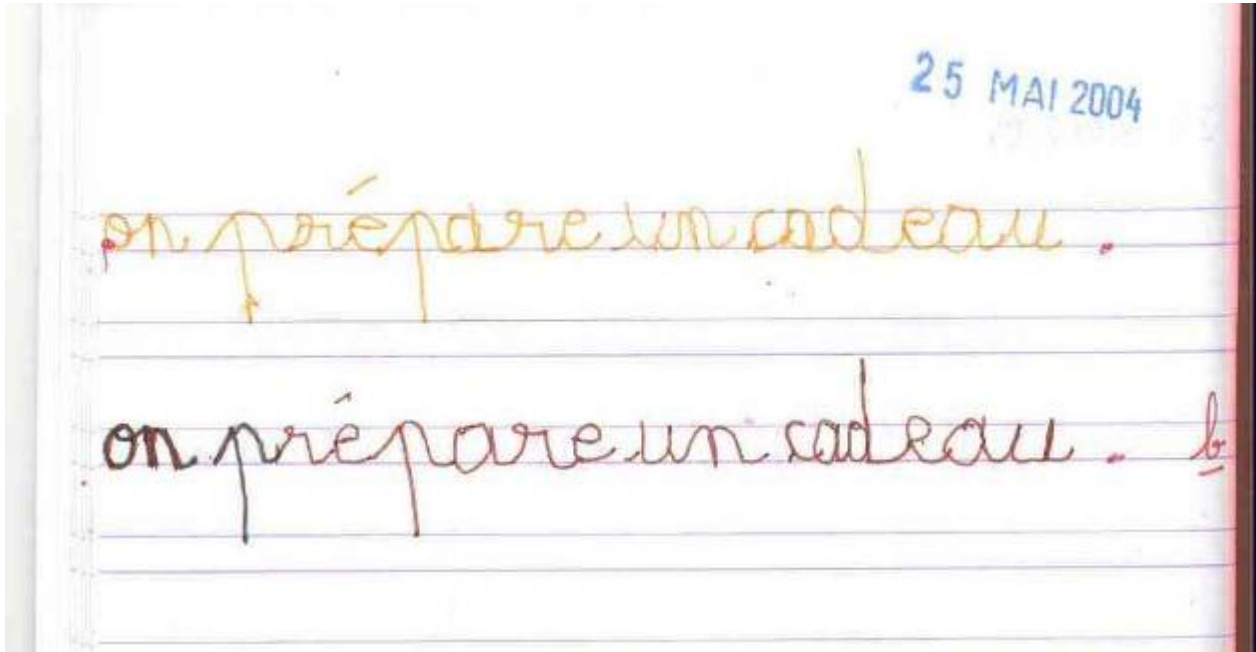 25 MAI 2004
on prépare un cadeau.
on prépare un cadeau. b